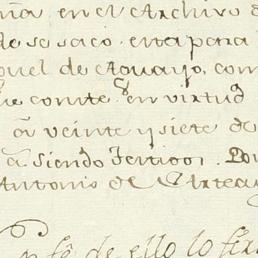 nía en el Archivo
de se saco esta para
quel de Aguayo, com
que comte en virtud
a veinte y siete de
a Siendo Testigos. Do
Antonio de Artea
n fê de ello lo fir